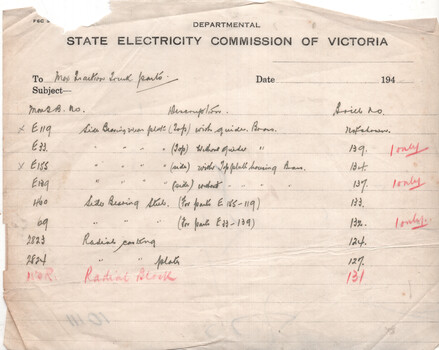 DEPARTMENTAL
STATE ELECTRICITY COMMISSION OF VICTORIA
To Traction Truck parts Date 194
Subject—
No. Description. No.
x E119 Side Bearing wear plate (Top) with guides. Brass.
E33 " " " " (Top) without guides " 139. 1 only
x E155 " " " " (side) with Top plate housing Brass. 134.
E139 " " " " (side) without - - - - 137. 1 only
1160 Side Bearing Steel. (For parts E155-119) 133.
69 " " " (For parts E33-139) 132. 1 only.
2823 Radial casting 124.
2824 " " plate 127.
Radial Block 131
10.111